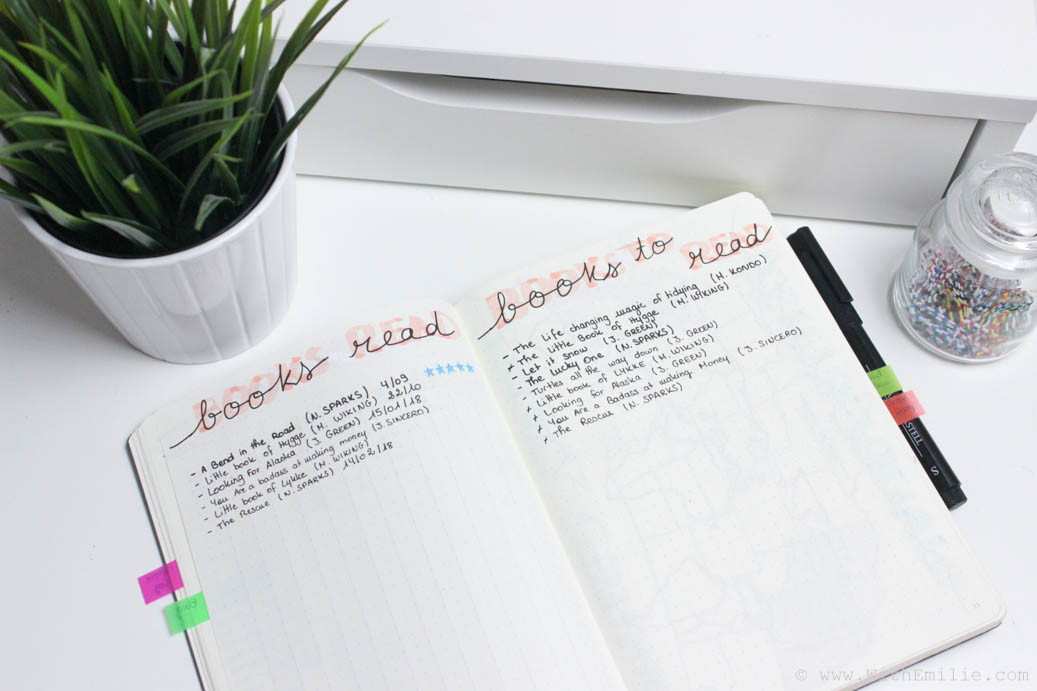 BOOKS READ
books read
- A Bend in the Road (N. SPARKS) 4/09
- Little book of Hygge (M. WIKING) 22/10
- Looking For Alaska (J. GREEN) 15/01/18
- You Are a badass at making money (J. SINCERO)
- Little book of Lykke (M. WIKING)
- The Rescue (N. SPARKS) 14/02/18
BOOKS TO READ
books to read
- The Life changing magic of tidying (M. KONDO)
+ The Little Book of Hygge (M. WIKING)
- Let it snow (J. GREEN)
- The Lucky One (N. SPARKS)
- Turtles all the way down (J. GREEN)
+ Little book of LYKKE (M. WIKING)
+ Looking for Alaska (J. GREEN)
+ You Are a Badass at making Money (J. SINCERO)
+ The Rescue (N. SPARKS)
11
S
© www.WithEmilie.com